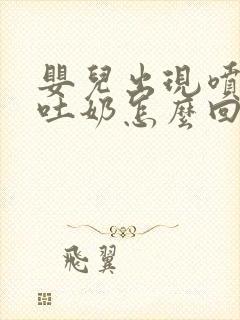 嬰兒出現噴
吐奶怎麼回
飛翼